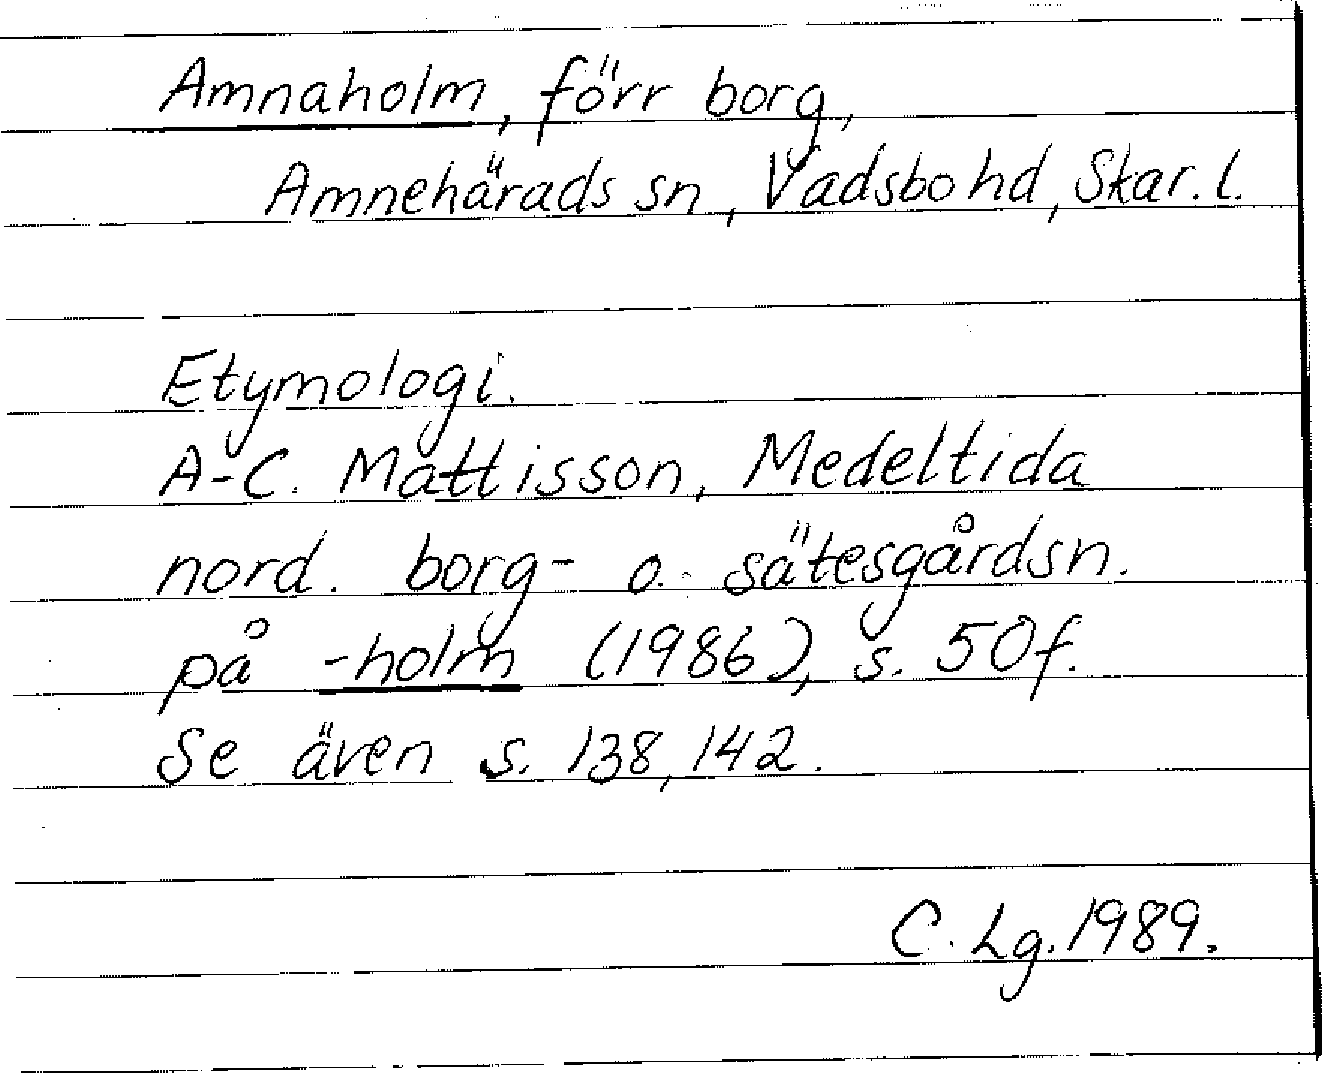 Amnaholm, förr borg,
Amnehärads sn, Vadsbo hd, Skar. l.
Etymologi.
A-C. Mattisson, Medeltida
nord. borg- o. sätesgårdsn.
på -holm (1986), s. 50f.
Se även s. 138, 142.
C. Lg. 1989.